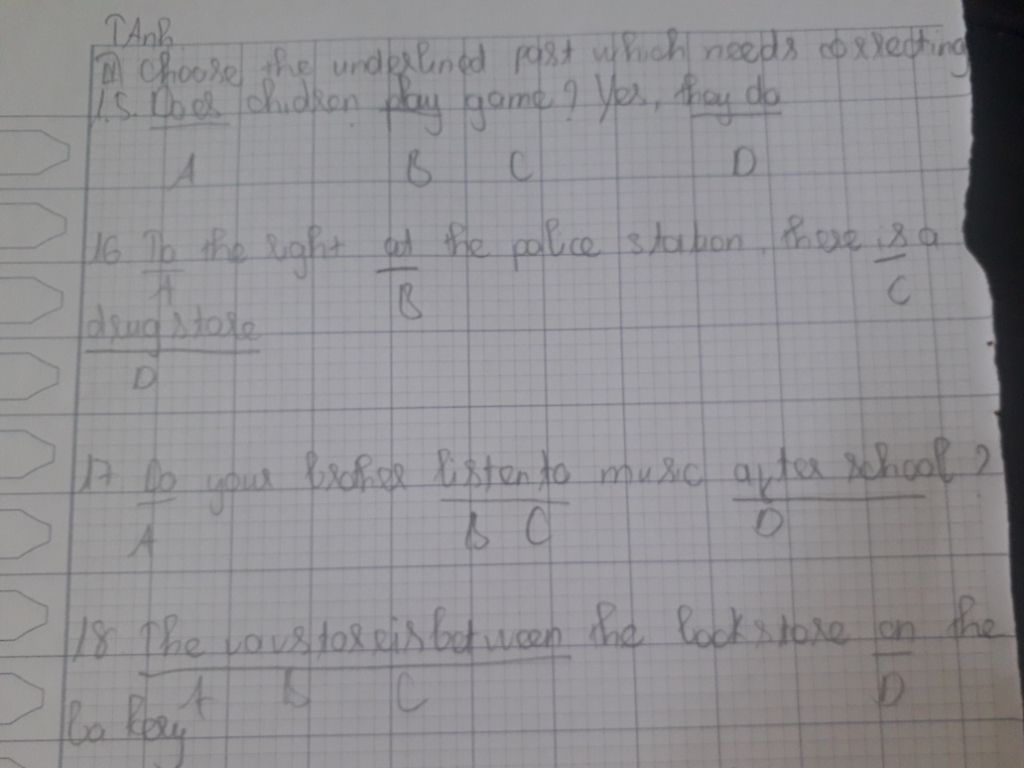 TAnh
III Choose the underlined part which needs correcting
15. Does chidren play game? Yes, they do
A B C D
16 To the right at the police station, there is a
A B C
drugstore
D
17 Do your brother listen to music after school?
A B C D
18. The is between the bookstore on the
A B C D
bakery